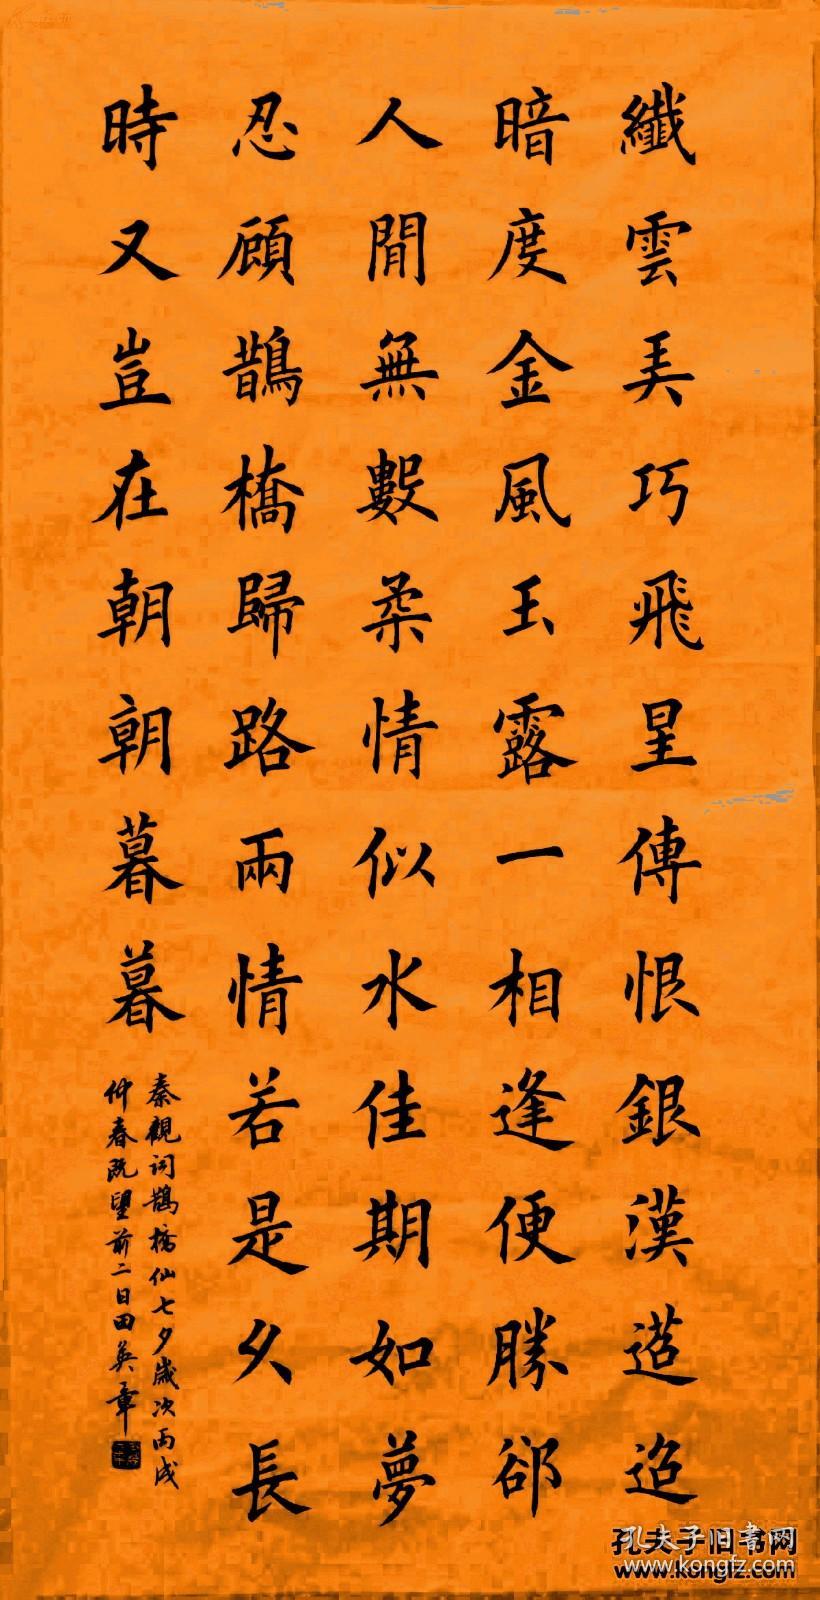 纖雲弄巧飛星傳恨銀漢迢迢
暗度金風玉露一相逢便勝卻
人間無數柔情似水佳期如夢
忍顧鵲橋歸路兩情若是久長
時又豈在朝朝暮暮
秦觀詞鵲橋仙七夕歲次丙戌
仲春既望前二日田英章
孔夫子旧书网
www.kongfz.com